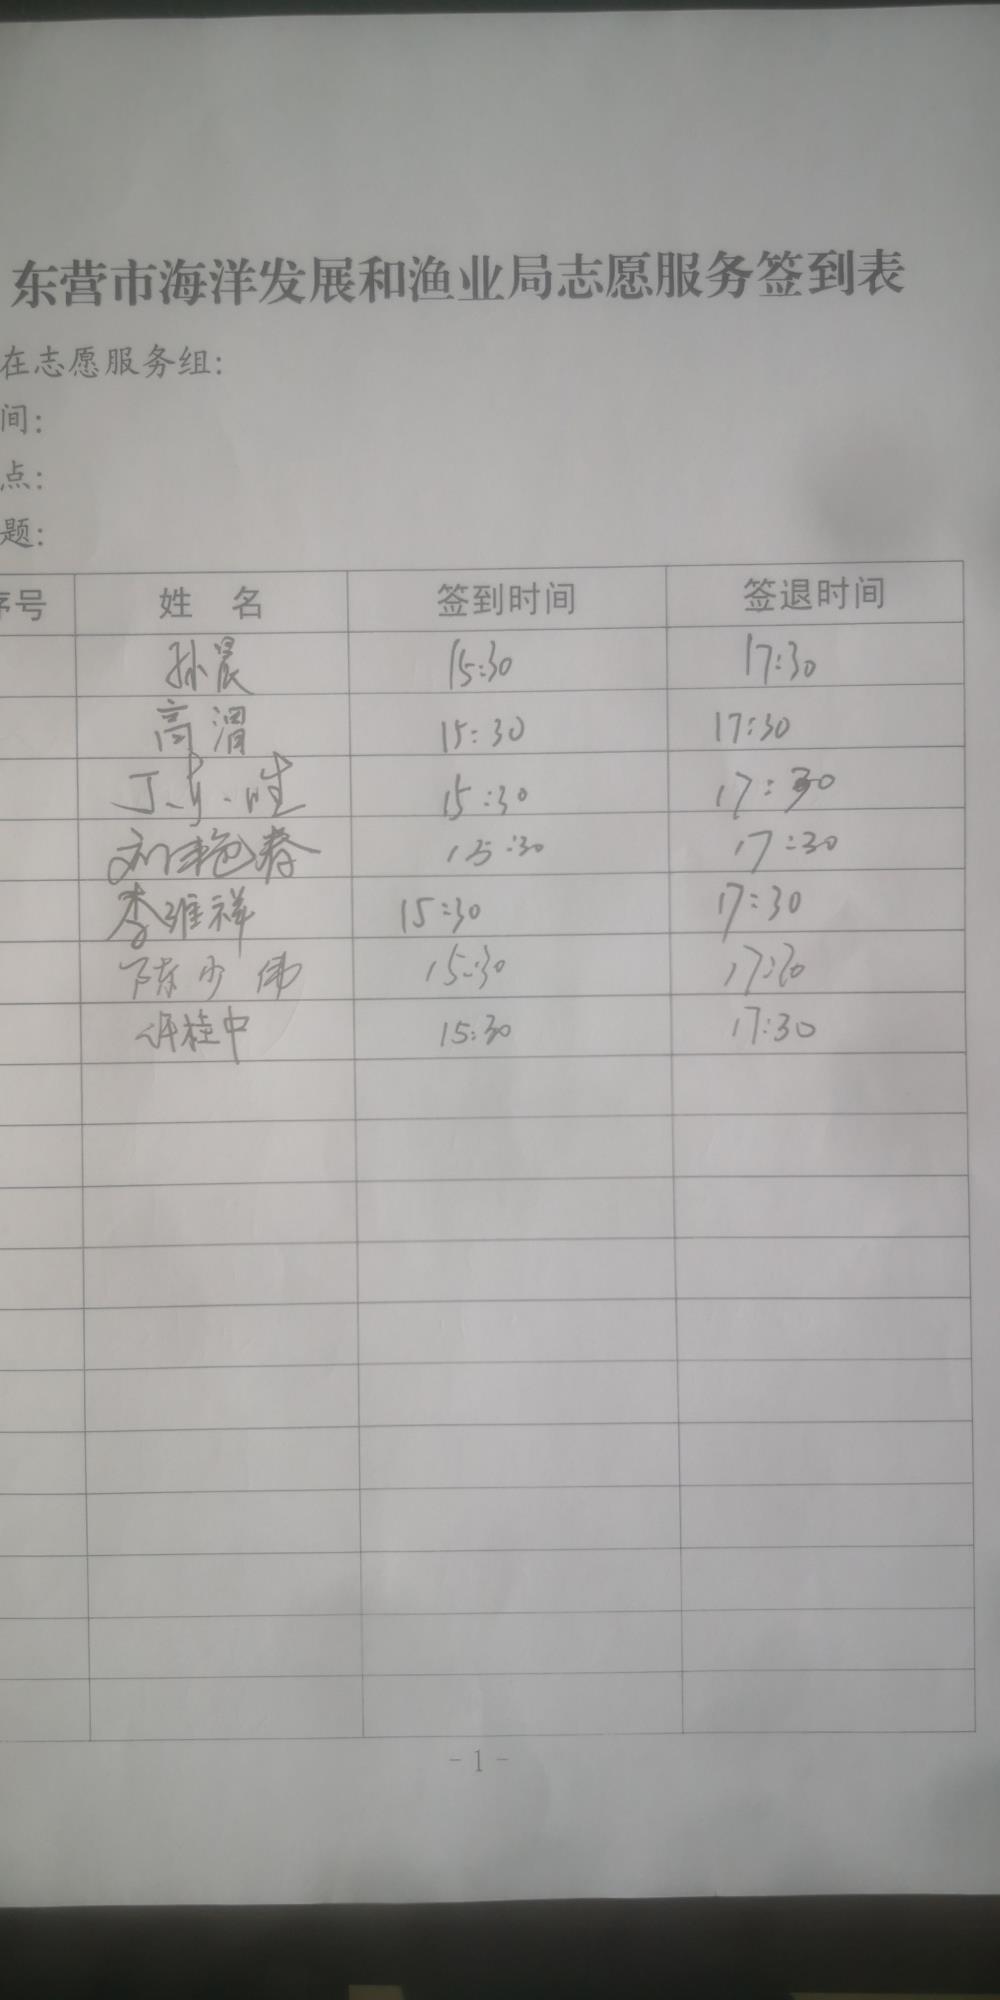 东营市海洋发展和渔业局志愿服务签到表
在志愿服务组:
间:
点:
题:
序号 姓 名 签到时间 签退时间
孙晨 15:30 17:30
高渭 15:30 17:30
15:30 17:30
刘艳春 15:30 17:30
李维祥 15:30 17:30
陈少伟 15:30 17:30
许桂中 15:30 17:30
- 1 -